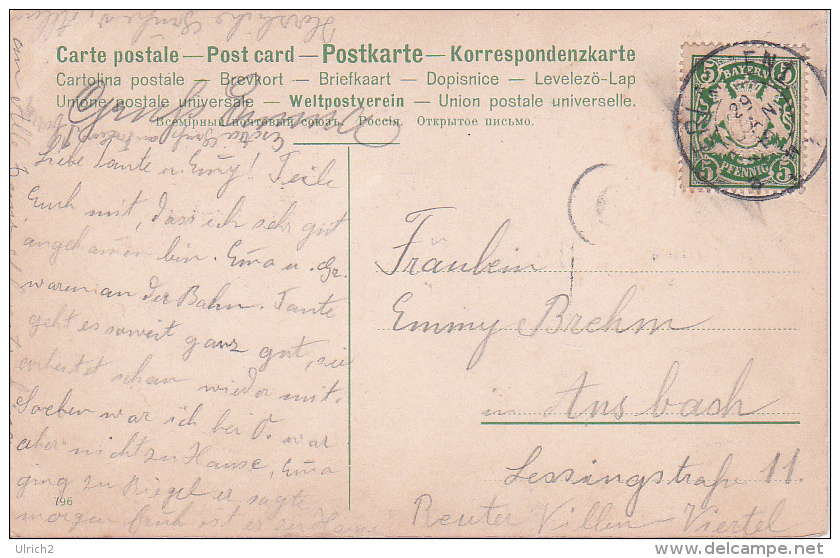 Carte postale — Post card — Postkarte — Korrespondenzkarte
Cartolina postale – Brevkort – Briefkaart – Dopisnice – Levelezö-Lap
Unione postale universale – Weltpostverein – Union postale universelle.
Всемірный почтовый союзъ. Россія. Открытое письмо.
BAYERN
5 5
PFENNIG
Liebe Tante u Emy! Teile
Euch mit, dass ich sehr gut
angekommen bin. Ema u. Gr.
waren an der Bahn. Tante
geht es soweit ganz gut, sie
arbeitet schon wieder mit.
Soeben war ich bei O. war
aber nicht zu Hause, Ema
ging zu Riegel er sagte
morgen früh ist er zu Hause
196
Fräulein
Emmy Brehm
in Ansbach
Lessingstraße 11.
Reuter Villen-Viertel
Ulrich2
www.delcampe.net